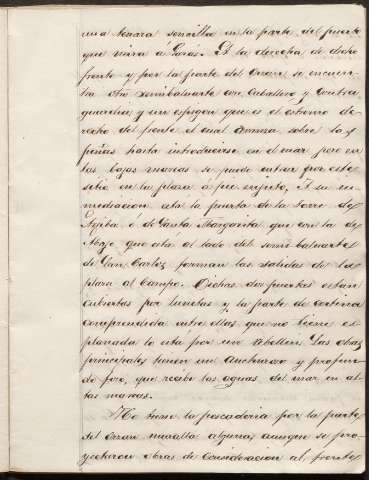 una tenaza sencilla en la parte del puerto
que mira á Pasages. A la derecha de dicho
frente y por la parte del Oceano se encuen
tra otro semibaluarte con Caballero y Contra
guardia y un espigon que es el estremo de-
recho del frente el cual avanza sobre las
peñas hasta introducirse en el mar pero en
las bajas mareas se puede entrar por este
sitio en la plaza á pie enjuto, A su in-
mediacion está la puerta de la torre de
ó de Santa Margarita que con la de
Abajo que está al lado del semi baluarte
de San Carlos forman las salidas de la
plaza al campo. Dichas dos puertas estan
cubiertas por lunetas y la parte de cortina
comprendida entre ellas que no tiene es
planada lo está por un rebellin. Las obras
principales tienen un anchuroso y profun
do foso, que recibe las aguas del mar en al
tas mareas.
No tiene la pescaderia por la parte
del Orzan muralla alguna aunque se pro-
yectaron obras de consideracion al frente